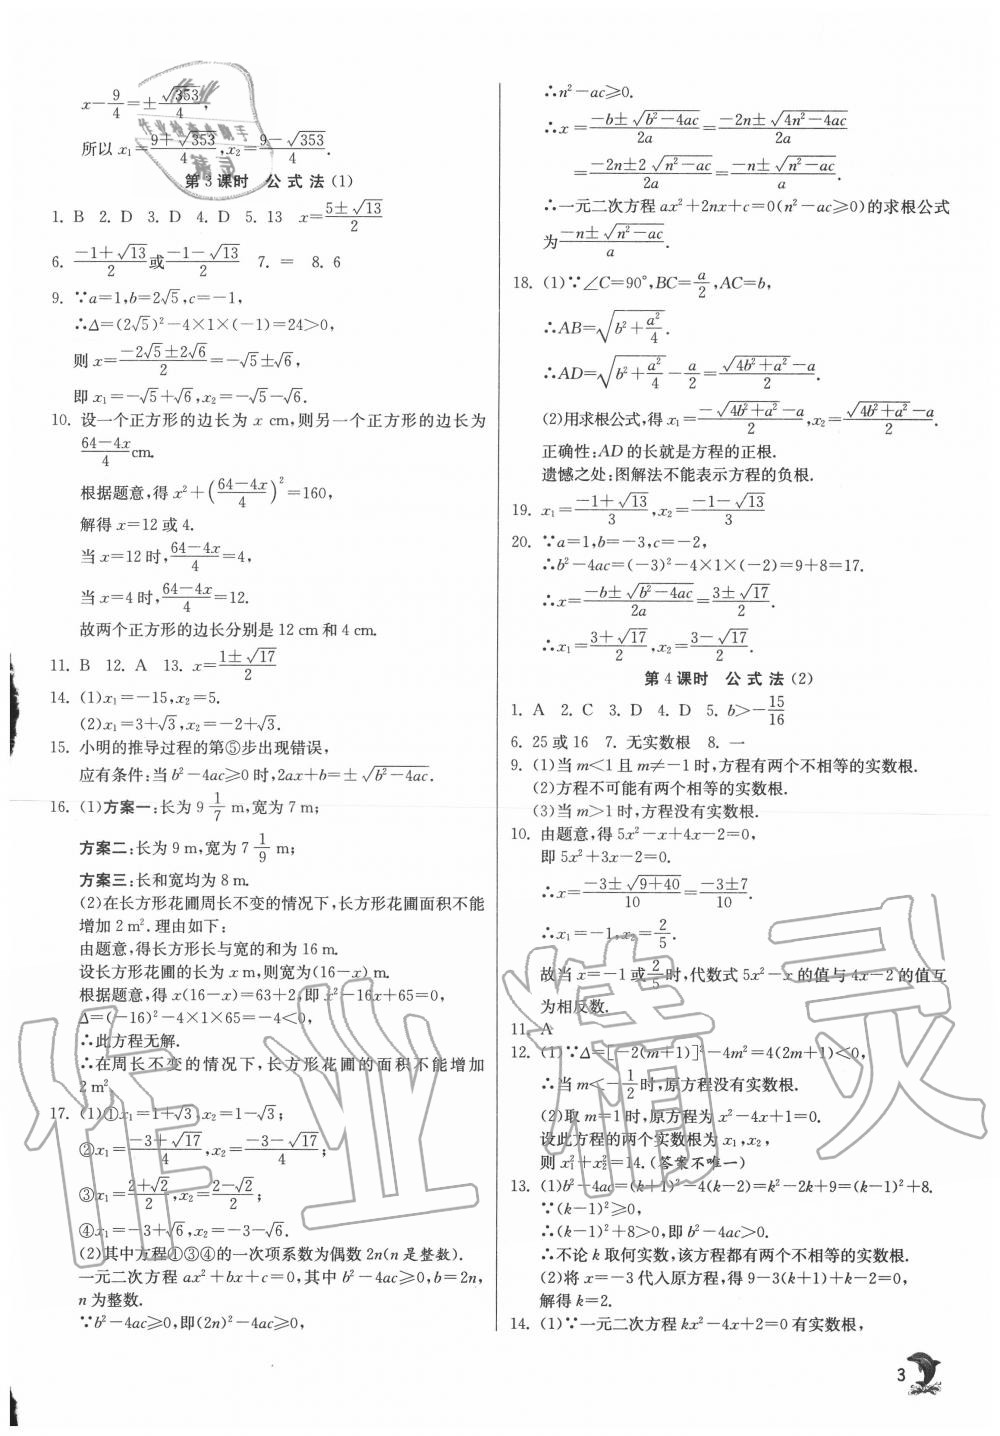 x-9/4=±√353/4,
所以 x₁=(9+√353)/4,x₂=(9-√353)/4.
第3课时　公式法(1)
1. B　2. D　3. D　4. D　5. 13　x=(5±√13)/2
6. (-1+√13)/2或(-1-√13)/2　7. =　8. 6
9. ∵a=1,b=2√5,c=-1,
∴Δ=(2√5)²-4×1×(-1)=24>0,
则 x=(-2√5±2√6)/2=-√5±√6,
即 x₁=-√5+√6,x₂=-√5-√6.
10. 设一个正方形的边长为 x cm,则另一个正方形的边长为
(64-4x)/4 cm.
根据题意,得 x²+((64-4x)/4)²=160,
解得 x=12 或 4.
当 x=12 时,(64-4x)/4=4,
当 x=4 时,(64-4x)/4=12.
故两个正方形的边长分别是 12 cm 和 4 cm.
11. B　12. A　13. x=(1±√17)/2
14. (1)x₁=-15,x₂=5.
(2)x₁=3+√3,x₂=-2+√3.
15. 小明的推导过程的第⑤步出现错误,
应有条件:当 b²-4ac≥0 时,2ax+b=±√(b²-4ac).
16. (1)方案一:长为 9 1/7 m,宽为 7 m;
方案二:长为 9 m,宽为 7 1/9 m;
方案三:长和宽均为 8 m.
(2)在长方形花圃周长不变的情况下,长方形花圃面积不能
增加 2 m².理由如下:
由题意,得长方形长与宽的和为 16 m.
设长方形花圃的长为 x m,则宽为(16-x) m.
根据题意,得 x(16-x)=63+2,即 x²-16x+65=0,
Δ=(-16)²-4×1×65=-4<0,
∴此方程无解.
∴在周长不变的情况下,长方形花圃的面积不能增加
2 m².
17. (1)①x₁=1+√3,x₂=1-√3;
②x₁=(-3+√17)/4,x₂=(-3-√17)/4;
③x₁=(2+√2)/2,x₂=(2-√2)/2;
④x₁=-3+√6,x₂=-3-√6.
(2)其中方程①③④的一次项系数为偶数 2n(n 是整数).
一元二次方程 ax²+bx+c=0,其中 b²-4ac≥0,b=2n,
n 为整数.
∵b²-4ac≥0,即(2n)²-4ac≥0,
∴n²-ac≥0.
∴x=(-b±√(b²-4ac))/2a=(-2n±√(4n²-4ac))/2a
=(-2n±2√(n²-ac))/2a=(-n±√(n²-ac))/a.
∴一元二次方程 ax²+2nx+c=0(n²-ac≥0)的求根公式
为(-n±√(n²-ac))/a.
18. (1)∵∠C=90°,BC=a/2,AC=b,
∴AB=√(b²+a²/4).
∴AD=√(b²+a²/4)-a/2=(√(4b²+a²)-a)/2.
(2)用求根公式,得 x₁=(-√(4b²+a²)-a)/2,x₂=(√(4b²+a²)-a)/2.
正确性:AD 的长就是方程的正根.
遗憾之处:图解法不能表示方程的负根.
19. x₁=(-1+√13)/3,x₂=(-1-√13)/3
20. ∵a=1,b=-3,c=-2,
∴b²-4ac=(-3)²-4×1×(-2)=9+8=17.
∴x=(-b±√(b²-4ac))/2a=(3±√17)/2.
∴x₁=(3+√17)/2,x₂=(3-√17)/2.
第4课时　公式法(2)
1. A　2. C　3. D　4. D　5. b>-15/16
6. 25 或 16　7. 无实数根　8. 一
9. (1)当 m<1 且 m≠-1 时,方程有两个不相等的实数根.
(2)方程不可能有两个相等的实数根.
(3)当 m>1 时,方程没有实数根.
10. 由题意,得 5x²-x+4x-2=0,
即 5x²+3x-2=0.
∴x=(-3±√(9+40))/10=(-3±7)/10.
∴x₁=-1,x₂=2/5.
故当 x=-1 或 2/5 时,代数式 5x²-x 的值与 4x-2 的值互
为相反数.
11. A
12. (1)∵Δ=[-2(m+1)]²-4m²=4(2m+1)<0,
∴当 m<-1/2 时,原方程没有实数根.
(2)取 m=1 时,原方程为 x²-4x+1=0.
设此方程的两个实数根为 x₁,x₂,
则 x₁²+x₂²=14.(答案不唯一)
13. (1)b²-4ac=(k+1)²-4(k-2)=k²-2k+9=(k-1)²+8.
∵(k-1)²≥0,
∴(k-1)²+8>0,即 b²-4ac>0.
∴不论 k 取何实数,该方程都有两个不相等的实数根.
(2)将 x=-3 代入原方程,得 9-3(k+1)+k-2=0,
解得 k=2.
14. (1)∵一元二次方程 kx²-4x+2=0 有实数根,
3
作业精灵
作业检查小助手